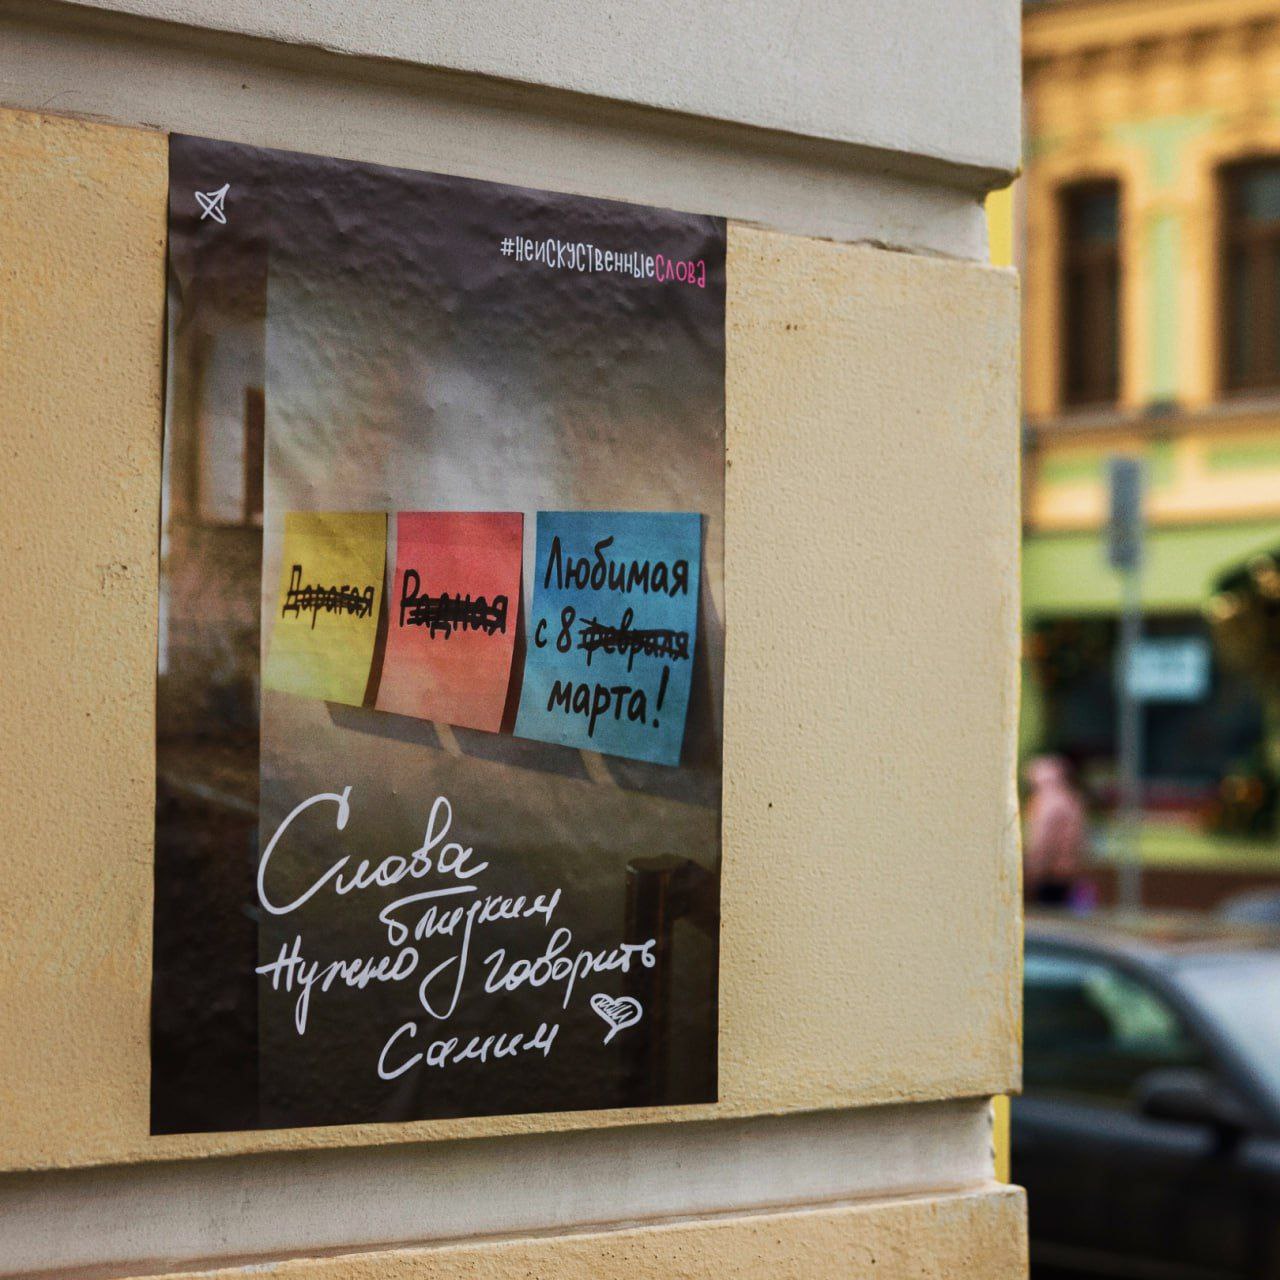 #неискуственныеслова
Дарагая
Радная
Любимая
с 8 февраля
марта!
Слова
близким
Нужно говорить
Самим